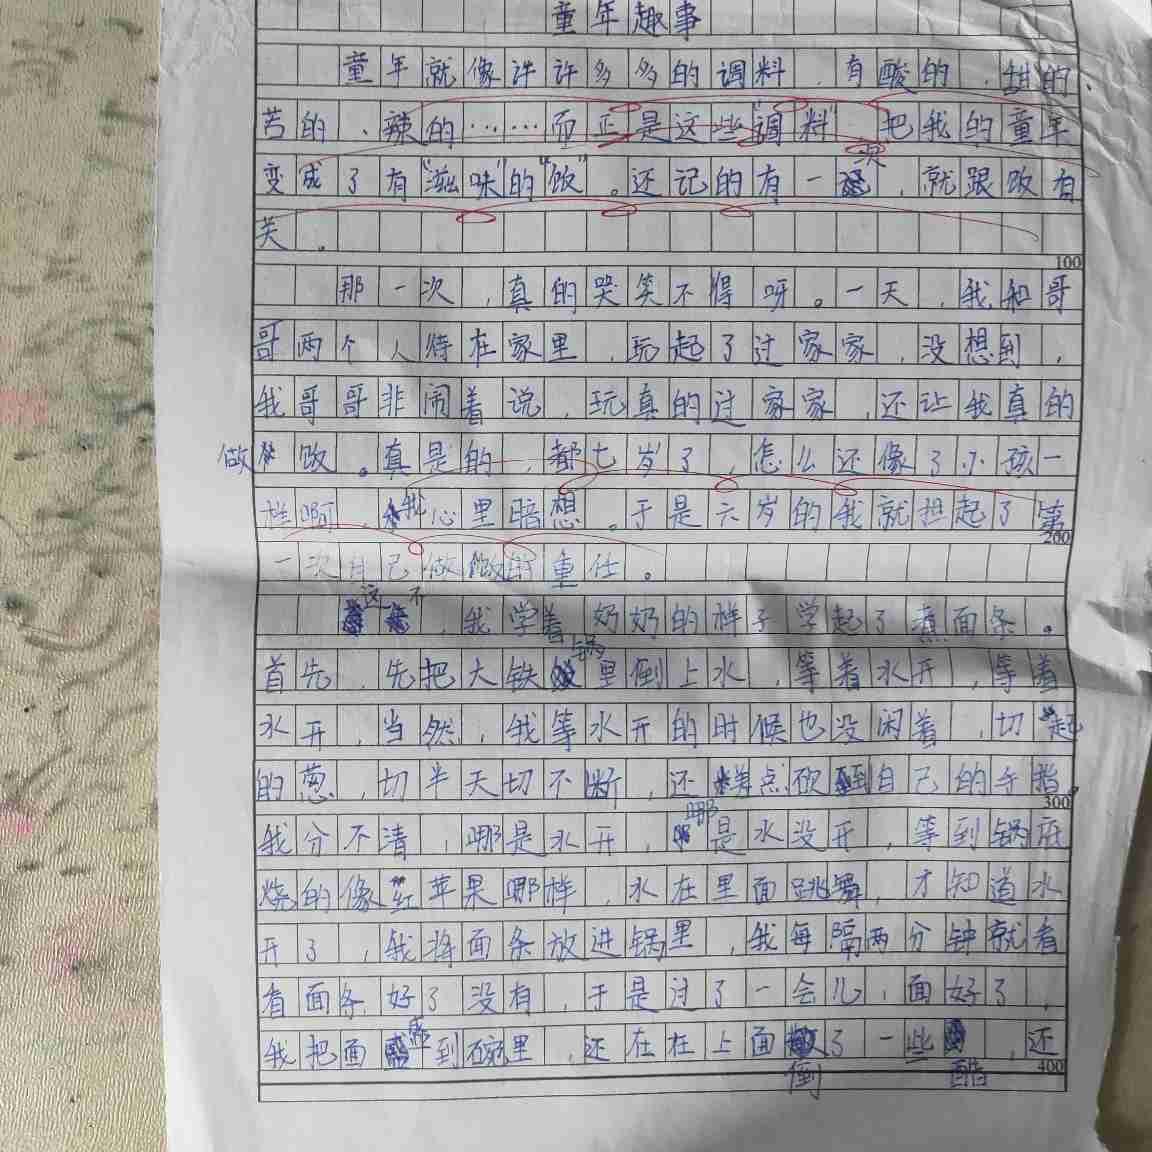 童年趣事
童年就像许许多多的调料，有酸的、甜的、
苦的、辣的……而正是这些"调料"把我的童年
变成了有"滋味"的"饭"。还记的有一次，就跟饭有
关。
100
那一次，真的哭笑不得呀。一天，我和哥
哥两个人待在家里，玩起了过家家，没想到，
我哥哥非闹着说，玩真的过家家，还让我真的
做饭。真是的，都七岁了，怎么还像了小孩一
样啊，我心里暗想。于是六岁的我就担起了第
200
一次自己做饭的重任。
这不，我学着奶奶的样子学起了煮面条。
首先，先把大铁锅里倒上水，等着水开，等着
水开，当然，我等水开的时候也没闲着，切起
的葱，切半天切不断，还差点砍到自己的手指，
300
我分不清，哪是水开，哪是水没开，等到锅底
烧的像红苹果哪样，水在里面跳舞，才知道水
开了，我将面条放进锅里，我每隔两分钟就看
看面条好了没有，于是过了一会儿，面好了，
我把面盛到碗里，还在在上面倒了一些醋，还
400